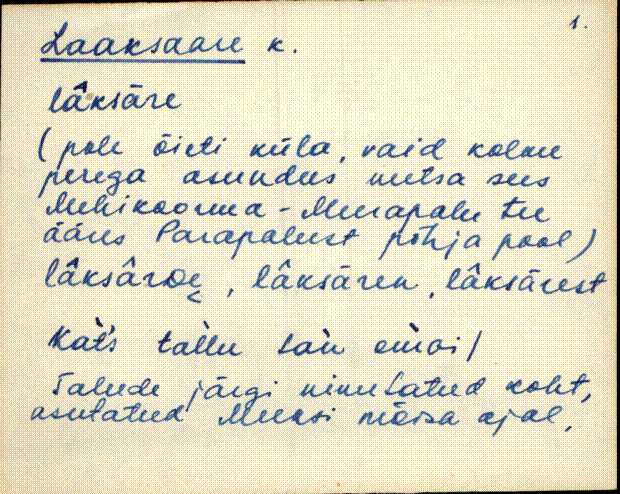 1.
Laaksaare k.
lâksāre
(pole õieti küla, vaid kolme
perega asundus metsa sees
Mehikoorma - Meerapalu tee
ääres Parapalust põhja pool)
lâksārɒe, lâksāren, lâksārest
kat̀s tal̀lu sǟl om̀ai/
Talude järgi nimetatud koht,
asutatud Meeksi mõisa ajal.